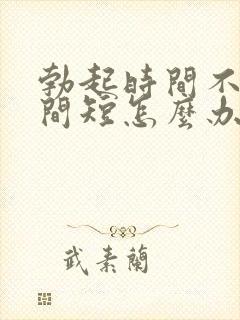 勃起時間不
間短怎麼办
武素蘭